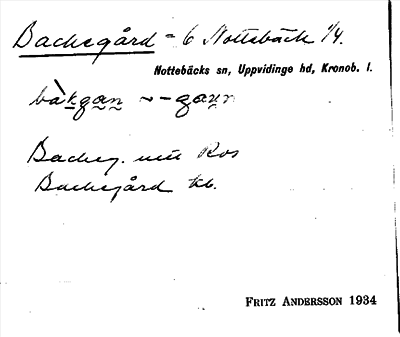 Backegård - 6 Nottebäck 1/4.
Nottebäcks sn, Uppvidinge hd, Kronob. l.
bàkgan ~ - gaun
Backeg. mtl Ros
Backegård kb.
FRITZ ANDERSSON 1934